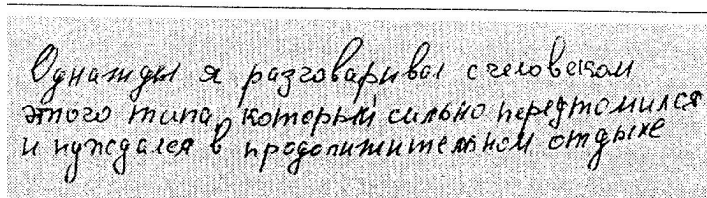 Однажды я разговаривал с человеком
этого типа, который сильно переутомился
и нуждался в продолжительном отдыхе